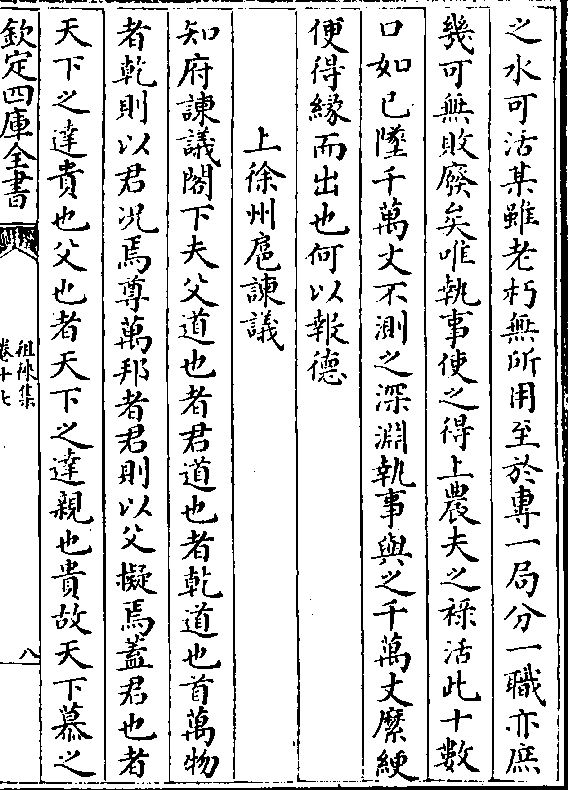 之水可活某雖老朽無所用至於專一局分一職亦庶
幾可無敗廢矣唯執事使之得上農夫之祿活此十數
口如已墜千萬丈不測之深淵執事與之千萬丈縻綆
便得緣而出也何以報德
上徐州扈諫議
知府諫議閣下夫父道也者君道也者乾道也首萬物
者乾則以君况焉尊萬邦者君則以父擬焉蓋君也者
天下之達貴也父也者天下之達親也貴故天下慕之
欽定四庫全書
徂徠集
卷十七
八